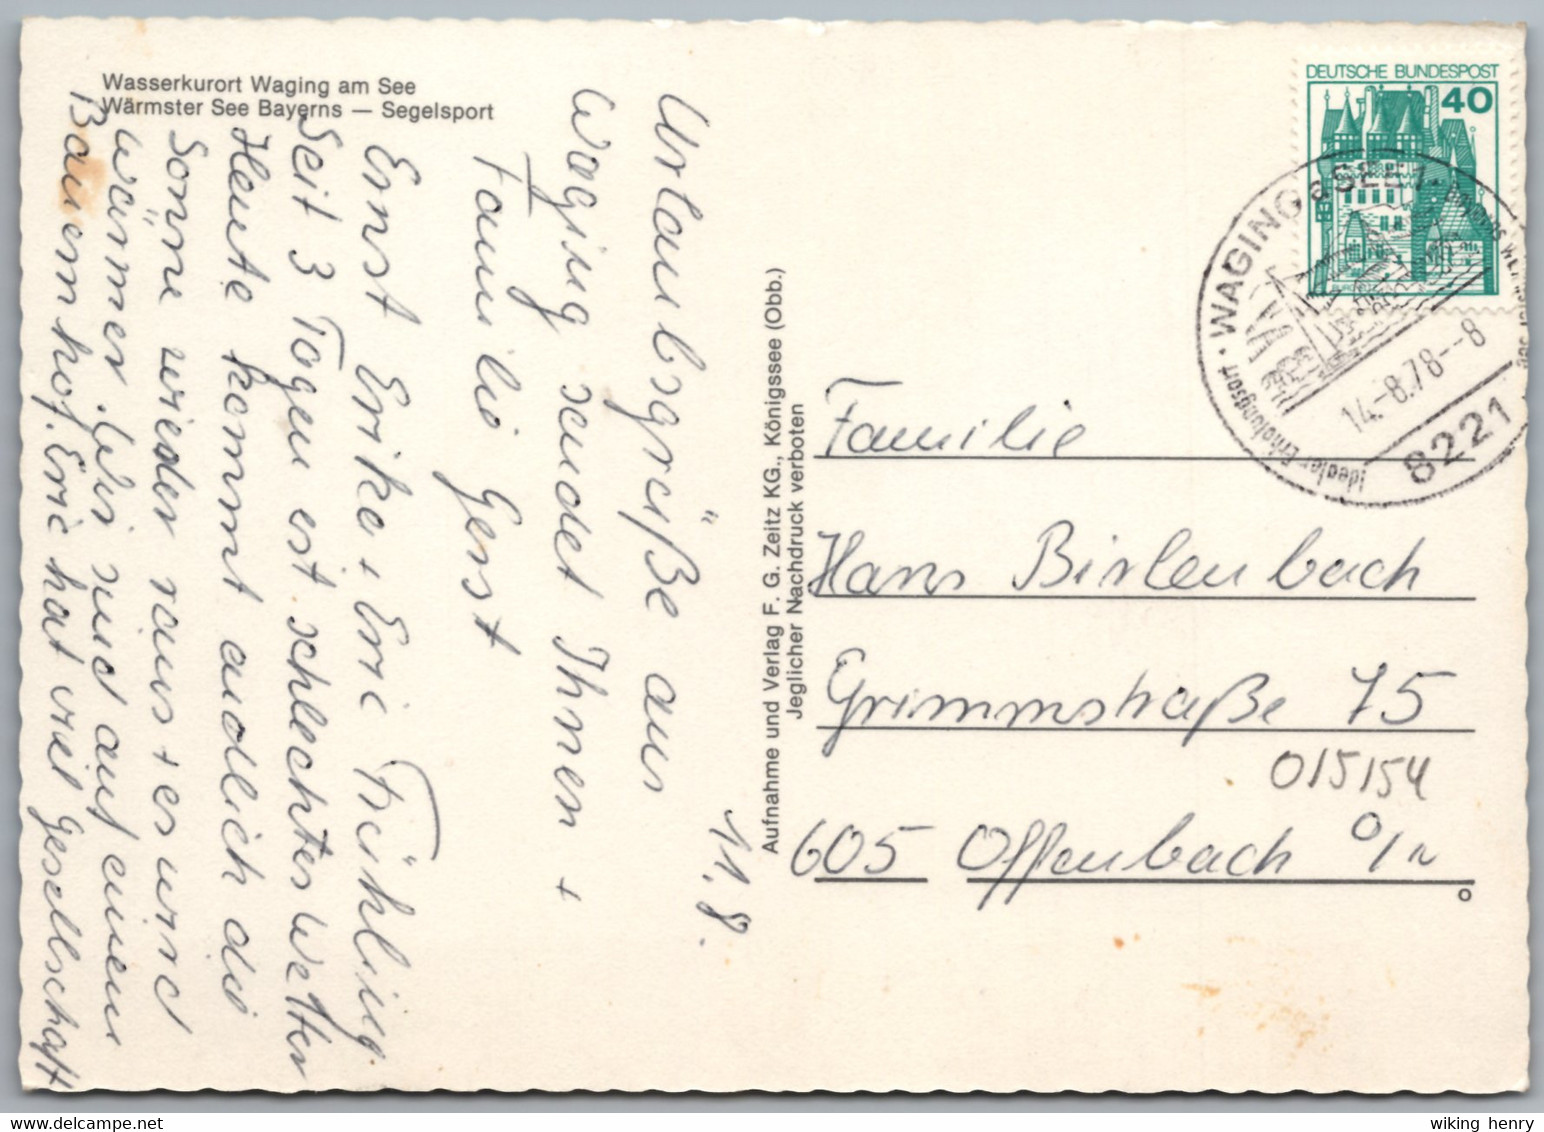 Wasserkurort Waging am See
Wärmster See Bayerns — Segelsport
11. 8.
Urlaubsgrüße aus
Waging sendet Ihnen +
Familie Gerst
Ernst Erika + Eric Frühling
Seit 3 Tagen ist schlechtes Wetter
Heute kommt endlich die
Sonne wieder raus + es wird
wärmer. Wir sind auf einem
Bauernhof. Eric hat viel Gesellschaft
Aufnahme und Verlag F. G. Zeitz KG., Königssee (Obb.)
Jeglicher Nachdruck verboten
DEUTSCHE BUNDESPOST
40
WAGING a SEE 1
Idealer Erholungsort
14.-8.78--8
8221
Familie
Hans Birlenbach
Grimmstraße 75
015154
605 Offenbach
wiking henry